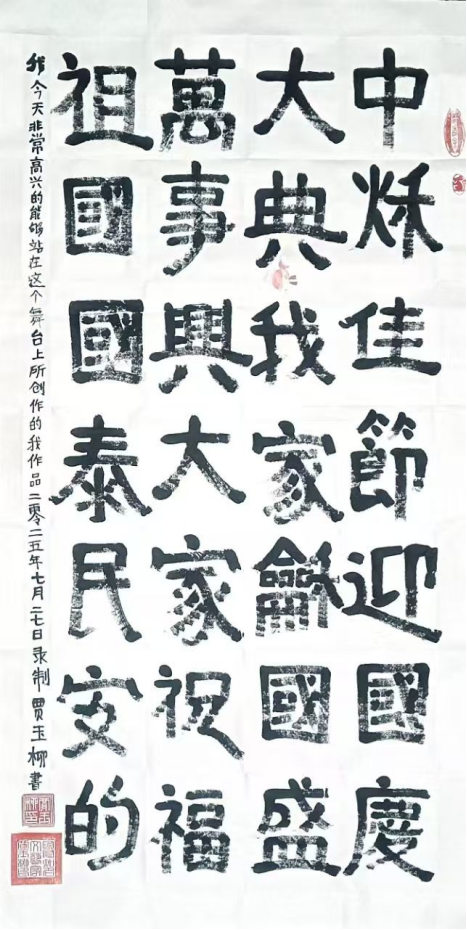 中秌佳節迎國慶
大典我家龢國盛
萬事興大家祝福
祖國國泰民安的
我今天非常高兴的能够站在这个舞台上所创作的我作品二零二五年七月二七日录制 贾玉柳書